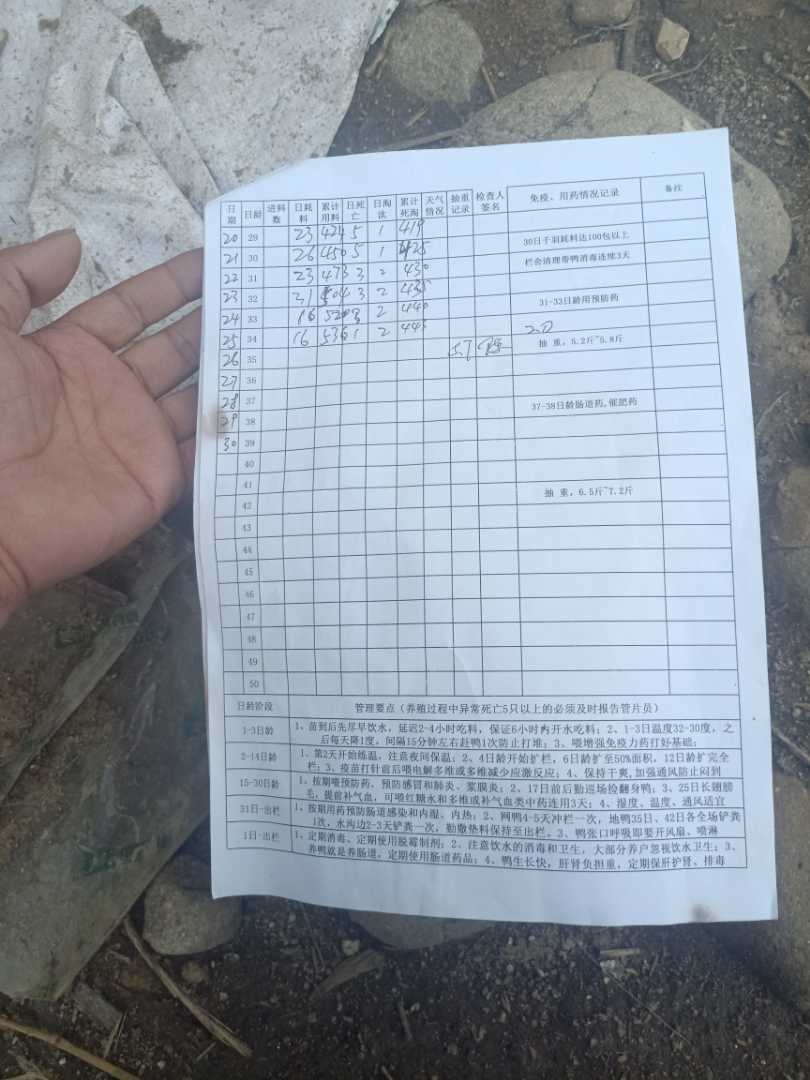 日期 日龄 进料数 日耗料 累计用料 日死亡 日淘汰 累计死淘 天气情况 抽重记录 检查人签名 免疫、用药情况记录 备注
20 29 23 424 5 1 419
21 30 26 450 5 1 425 30日千羽耗料达100包以上
22 31 23 473 3 2 430 栏舍清理带鸭消毒连续3天
23 32 31 504 3 2 435
24 33 16 520 3 2 440 31-33日龄用预防药
25 34 16 536 1 2 443
26 35 抽 重，5.2斤~5.8斤
27 36
28 37 37-38日龄肠道药,催肥药
29 38
30 39
40
41 抽 重，6.5斤~7.2斤
42
43
44
45
46
47
48
49
50
日龄阶段 管理要点（养殖过程中异常死亡5只以上的必须及时报告管片员）
1-3日龄 1、苗到后先尽早饮水，延迟2-4小时吃料，保证6小时内开水吃料；2、1-3日温度32-30度，之
后每天降1度，间隔15分钟左右赶鸭1次防止打堆；3、喂增强免疫力药打好基础；
2-14日龄 1、第2天开始练温，注意夜间保温；2、4日龄开始扩栏，6日龄扩至50%面积，12日龄扩完全
栏；3、疫苗打针前后喂电解多维或多维减少应激反应；4、保持干爽,加强通风防止闷到
15-30日龄 1、按期喂预防药、预防感冒和肺炎、浆膜炎；2、17日前后勤巡场检翻身鸭；3、25日长翅膀
毛，提前补气血，可喂红糖水和多维或补气血类中药连用3天；4、湿度、温度、通风适宜
31日-出栏 1、按期用药预防肠道感染和内湿、内热；2、网鸭4-5天冲栏一次，地鸭35日、42日各全场铲粪
1次，水沟边2-3天铲粪一次，勤撒垫料保持至出栏，3、鸭张口呼吸即要开风扇、喷淋
1日-出栏 1、定期消毒、定期使用脱霉制剂；2、注意饮水的消毒和卫生，大部分养户忽视饮水卫生；3、
养鸭就是养肠道，定期使用肠道药品；4、鸭生长快，肝肾负担重，定期保肝护肾、排毒